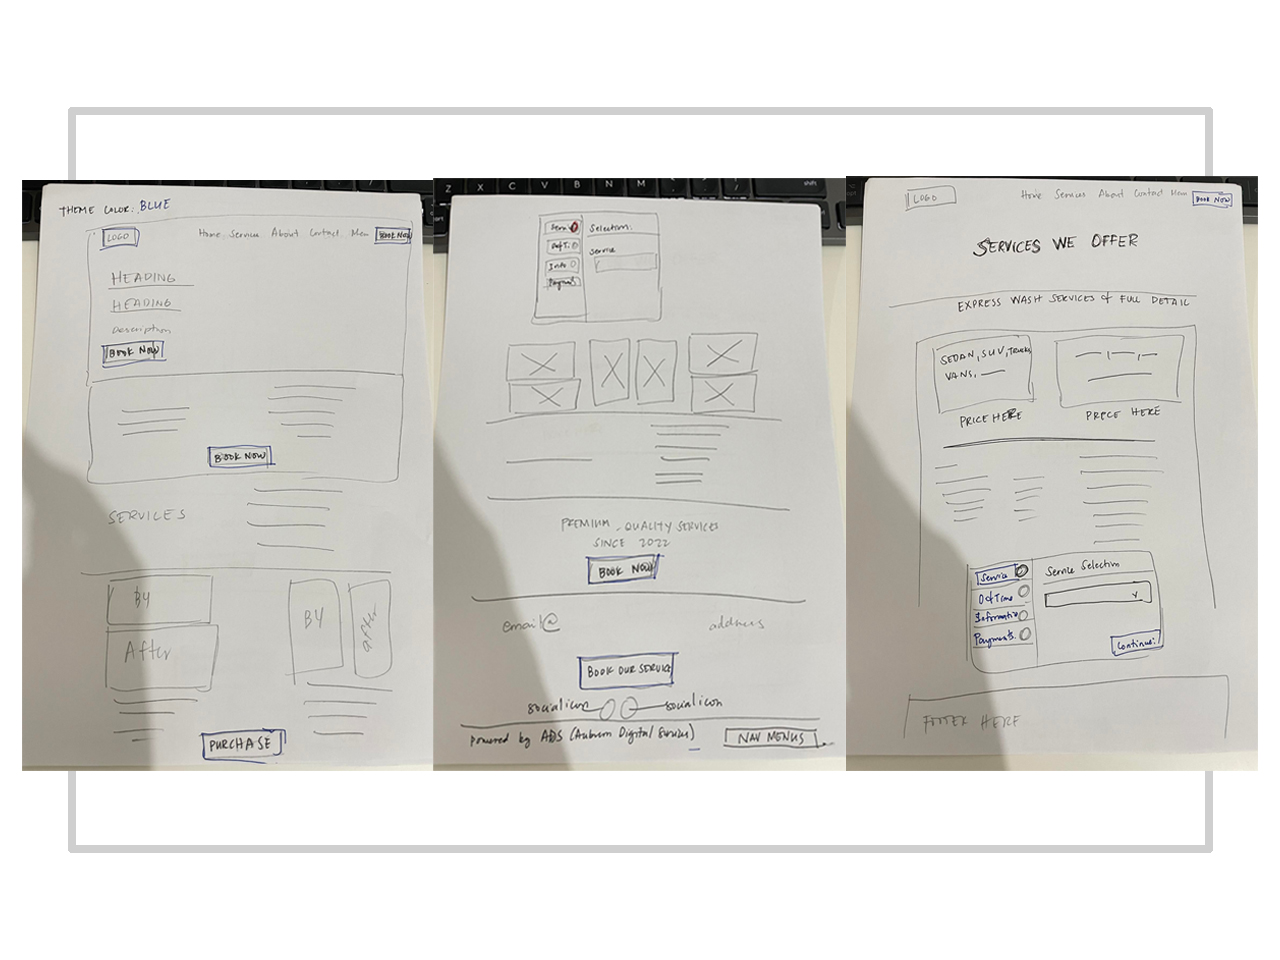 THEME COLOR: BLUE
LOGO
Home Services About Contact Menu BOOK NOW
HEADING
HEADING
Description
BOOK NOW
BOOK NOW
SERVICES
B4
After
B4
After
PURCHASE
Z X C V B N M shift
Selection:
Service
Info
PREMIUM - QUALITY SERVICES
SINCE 2022
BOOK NOW
email@
address
BOOK OUR SERVICE
social icon
social icon
Powered by ADS (Auburn Digital Services)
NAV MENUS
LOGO
Home Services About Contact Menu BOOK NOW
SERVICES WE OFFER
EXPRESS WASH SERVICES & FULL DETAIL
SEDAN, SUV, TRUCKS,
VANS,
PRICE HERE
PRICE HERE
Service
Information
Payments
Service Selection
Continue:
FOOTER HERE